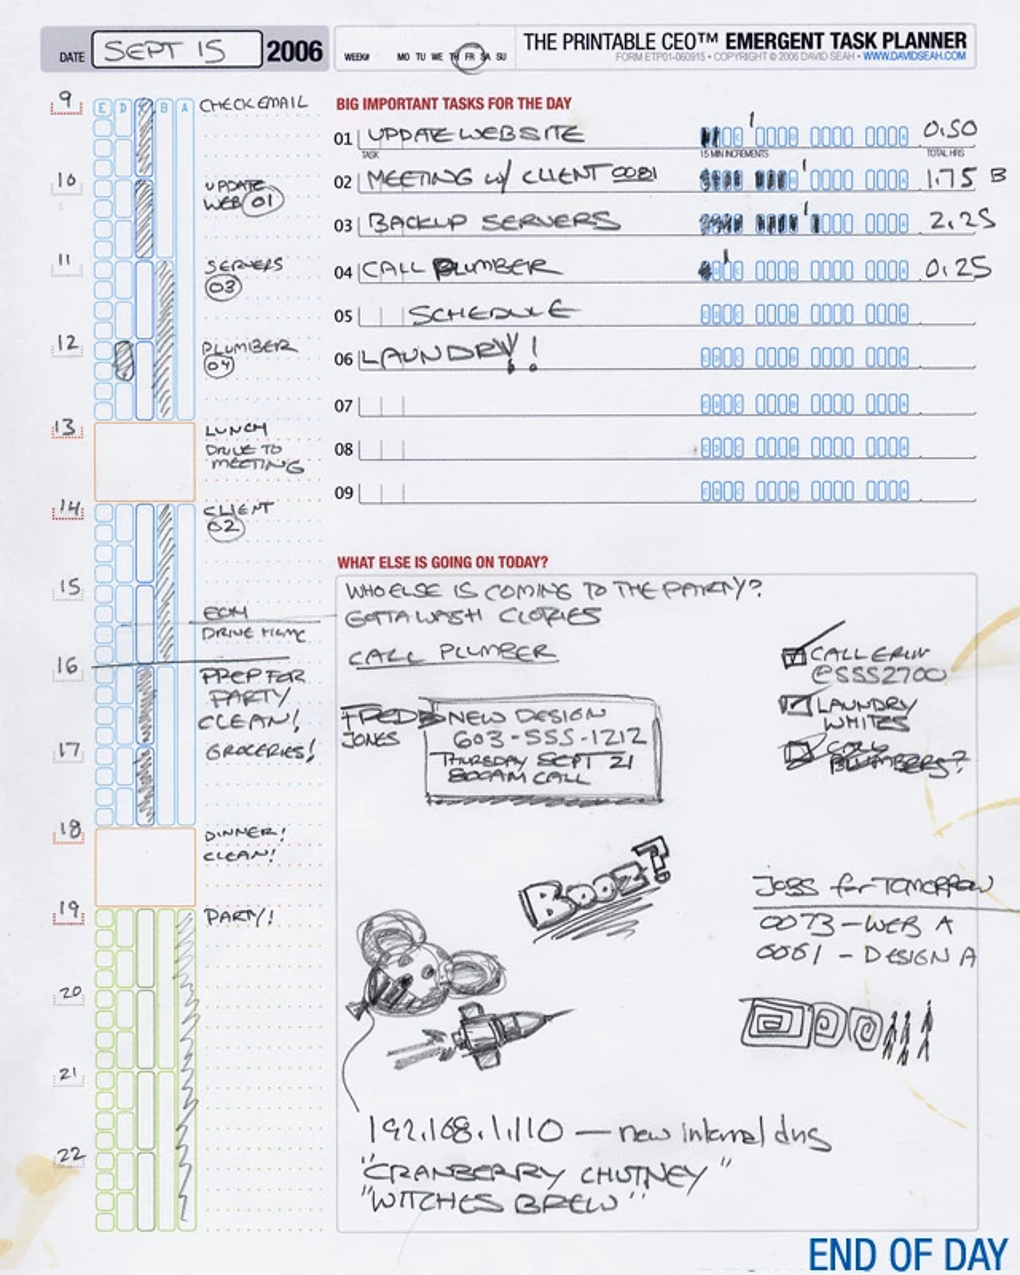 DATE SEPT 15 2006 WEEK# MO TU WE TH FR SA SU
THE PRINTABLE CEO™ EMERGENT TASK PLANNER
FORM ETP01-060915 • COPYRIGHT © 2006 DAVID SEAH • WWW.DAVIDSEAH.COM
9 E D B A CHECK EMAIL
10 UPDATE
WEB 01
11 SERVERS
03
12 PLUMBER
04
13 LUNCH
DRIVE TO
MEETING
14 CLIENT
02
15
DRIVE HOME
16 PREP FOR
PARTY
CLEAN!
17 GROCERIES!
18 DINNER!
CLEAN!
19 PARTY!
20
21
22
BIG IMPORTANT TASKS FOR THE DAY
01 UPDATE WEBSITE 0.50
TASK 15 MIN INCREMENTS TOTAL HRS
02 MEETING w/ CLIENT 0081 1.75 B
03 BACKUP SERVERS 2.25
04 CALL PLUMBER 0.25
05 SCHEDULE
06 LAUNDRY!!
07
08
09
WHAT ELSE IS GOING ON TODAY?
WHO ELSE IS COMING TO THE PARTY?
GOTTA WASH CLOTHES
CALL PLUMBER
CALL ERIN
@5552700
LAUNDRY
WHITES
CALL
PLUMBERS?
FRED
JONES
NEW DESIGN
603-555-1212
THURSDAY SEPT 21
800AM CALL
BOOZ?
JOBS for TOMORROW
0073 - WEB A
0061 - DESIGN A
192.168.1.110 — new internal dns
"CRANBERRY CHUTNEY"
"WITCHES BREW"
END OF DAY